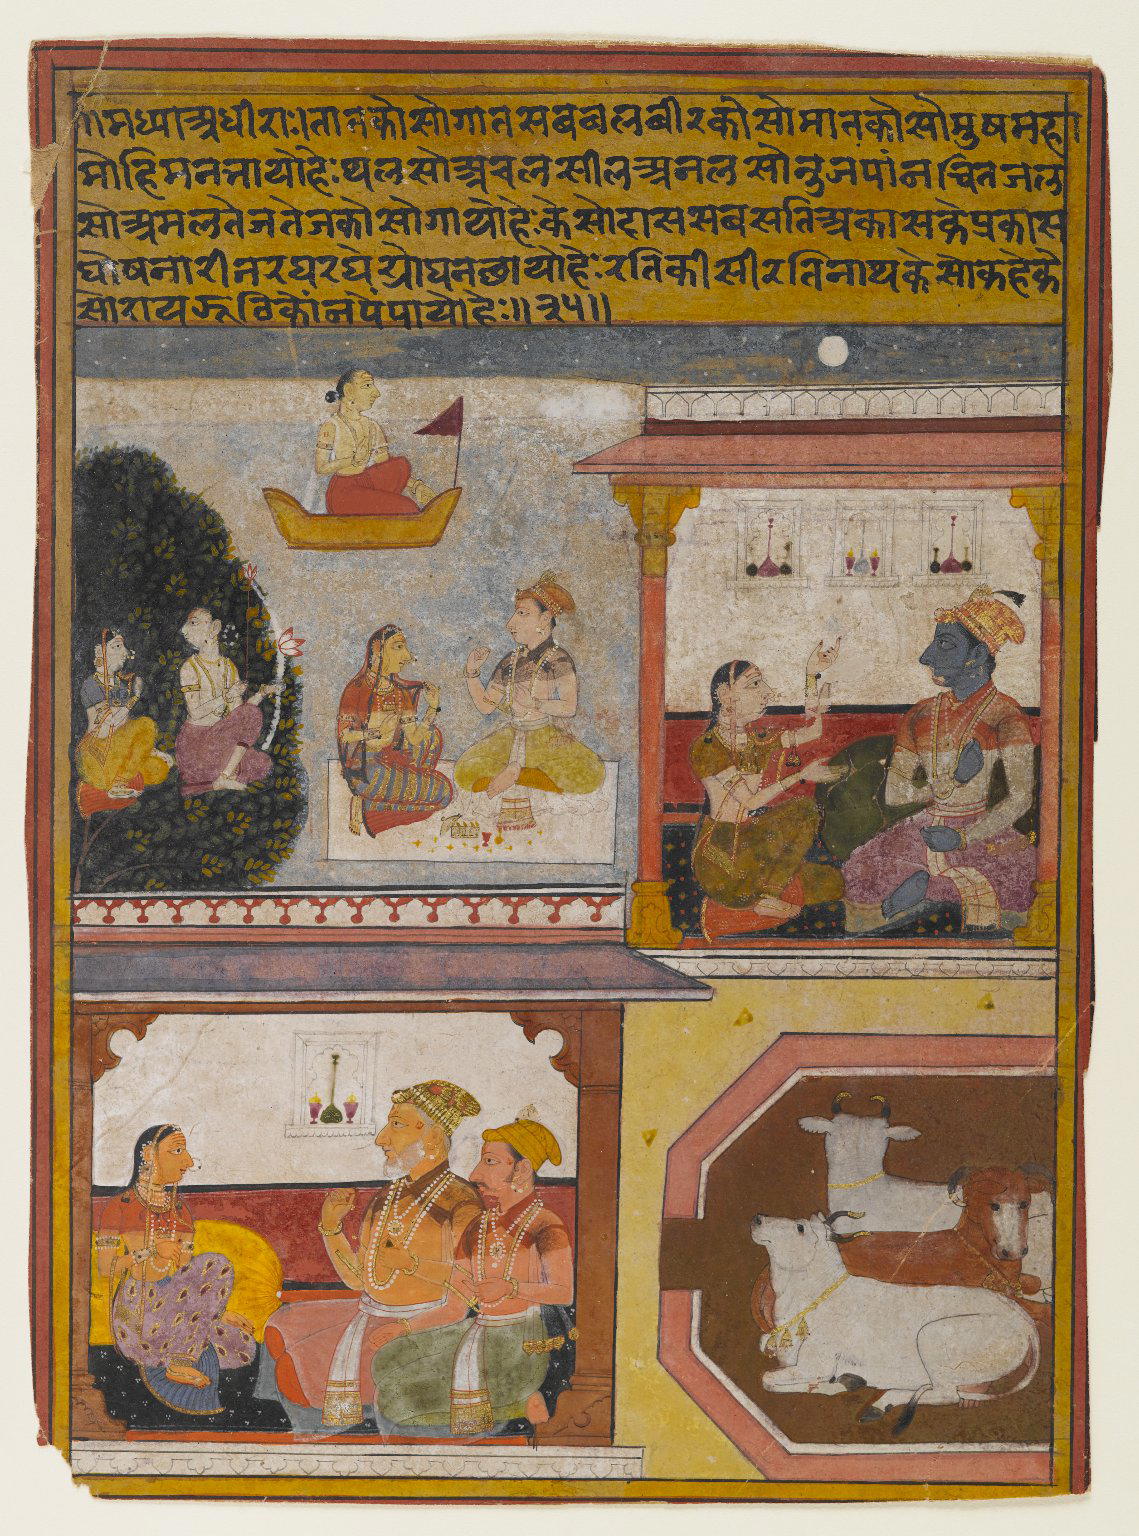 मध्याअधीराः।तातकोसोगातसबबलबीरकोसोमातकोसोमुषमहा
मोहिमनभायोहैःथलसोअचलसीलअनलसोचितजल
सोअमलतेजतेजकोसोगायोहैःकेसोदाससबसतिअकासकेप्रकास
घोषनारीनरघरघरघनछायोहैःरतिकीसीरतिनाथकेसोकहैके
सोरायझूठिकौंनपैपायोहैः॥३५॥